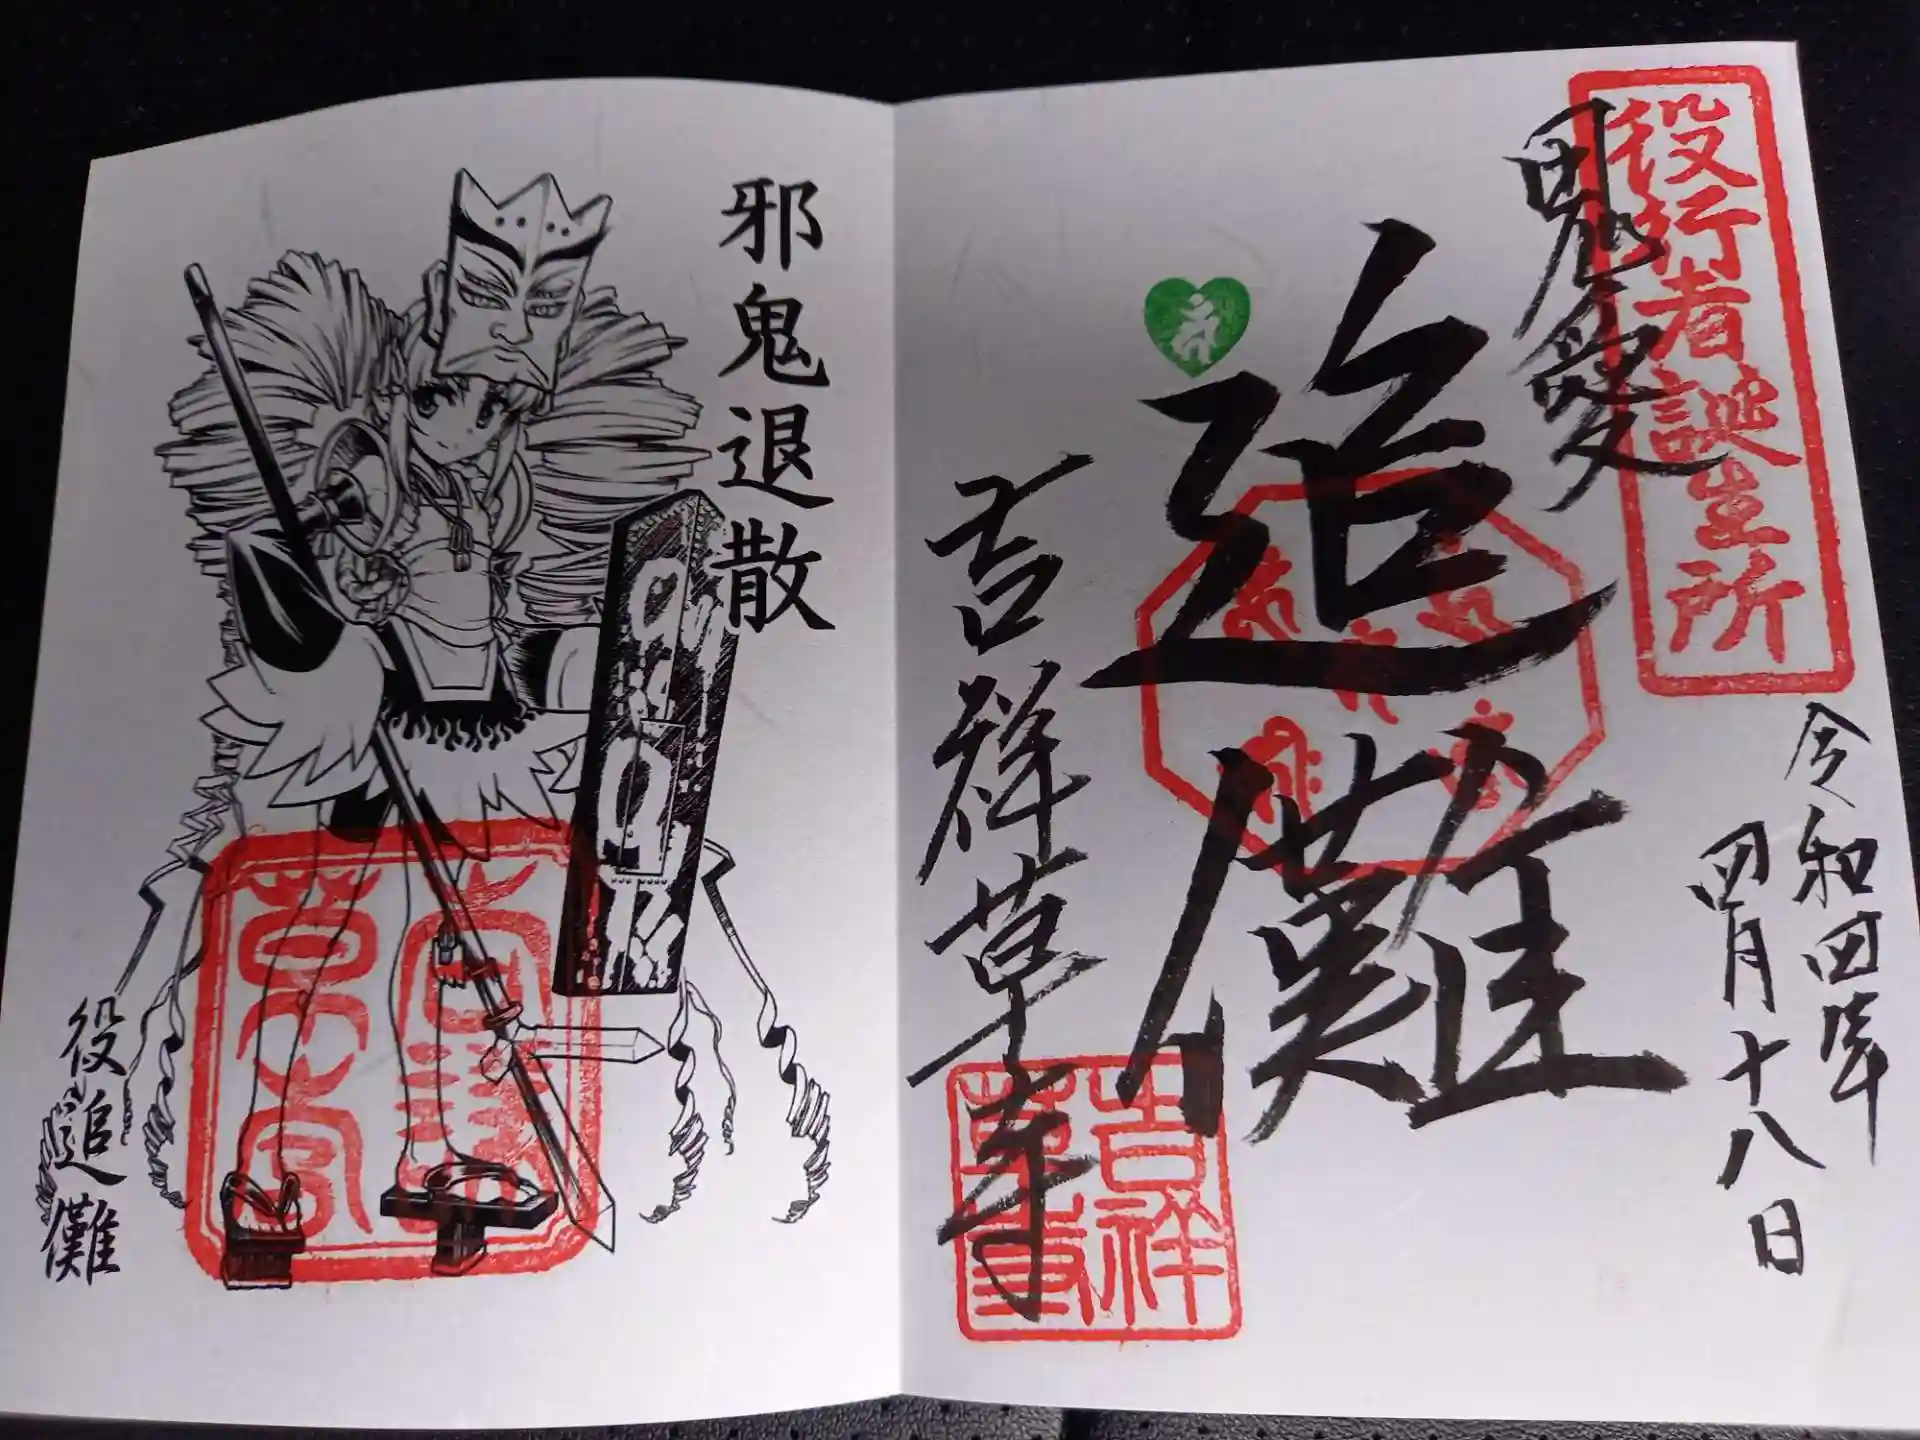 役行者誕生所
鬼愛
令和四年
四月十八日
追儺
吉祥草寺
吉祥草寺
邪鬼退散
役追儺
吉祥草寺